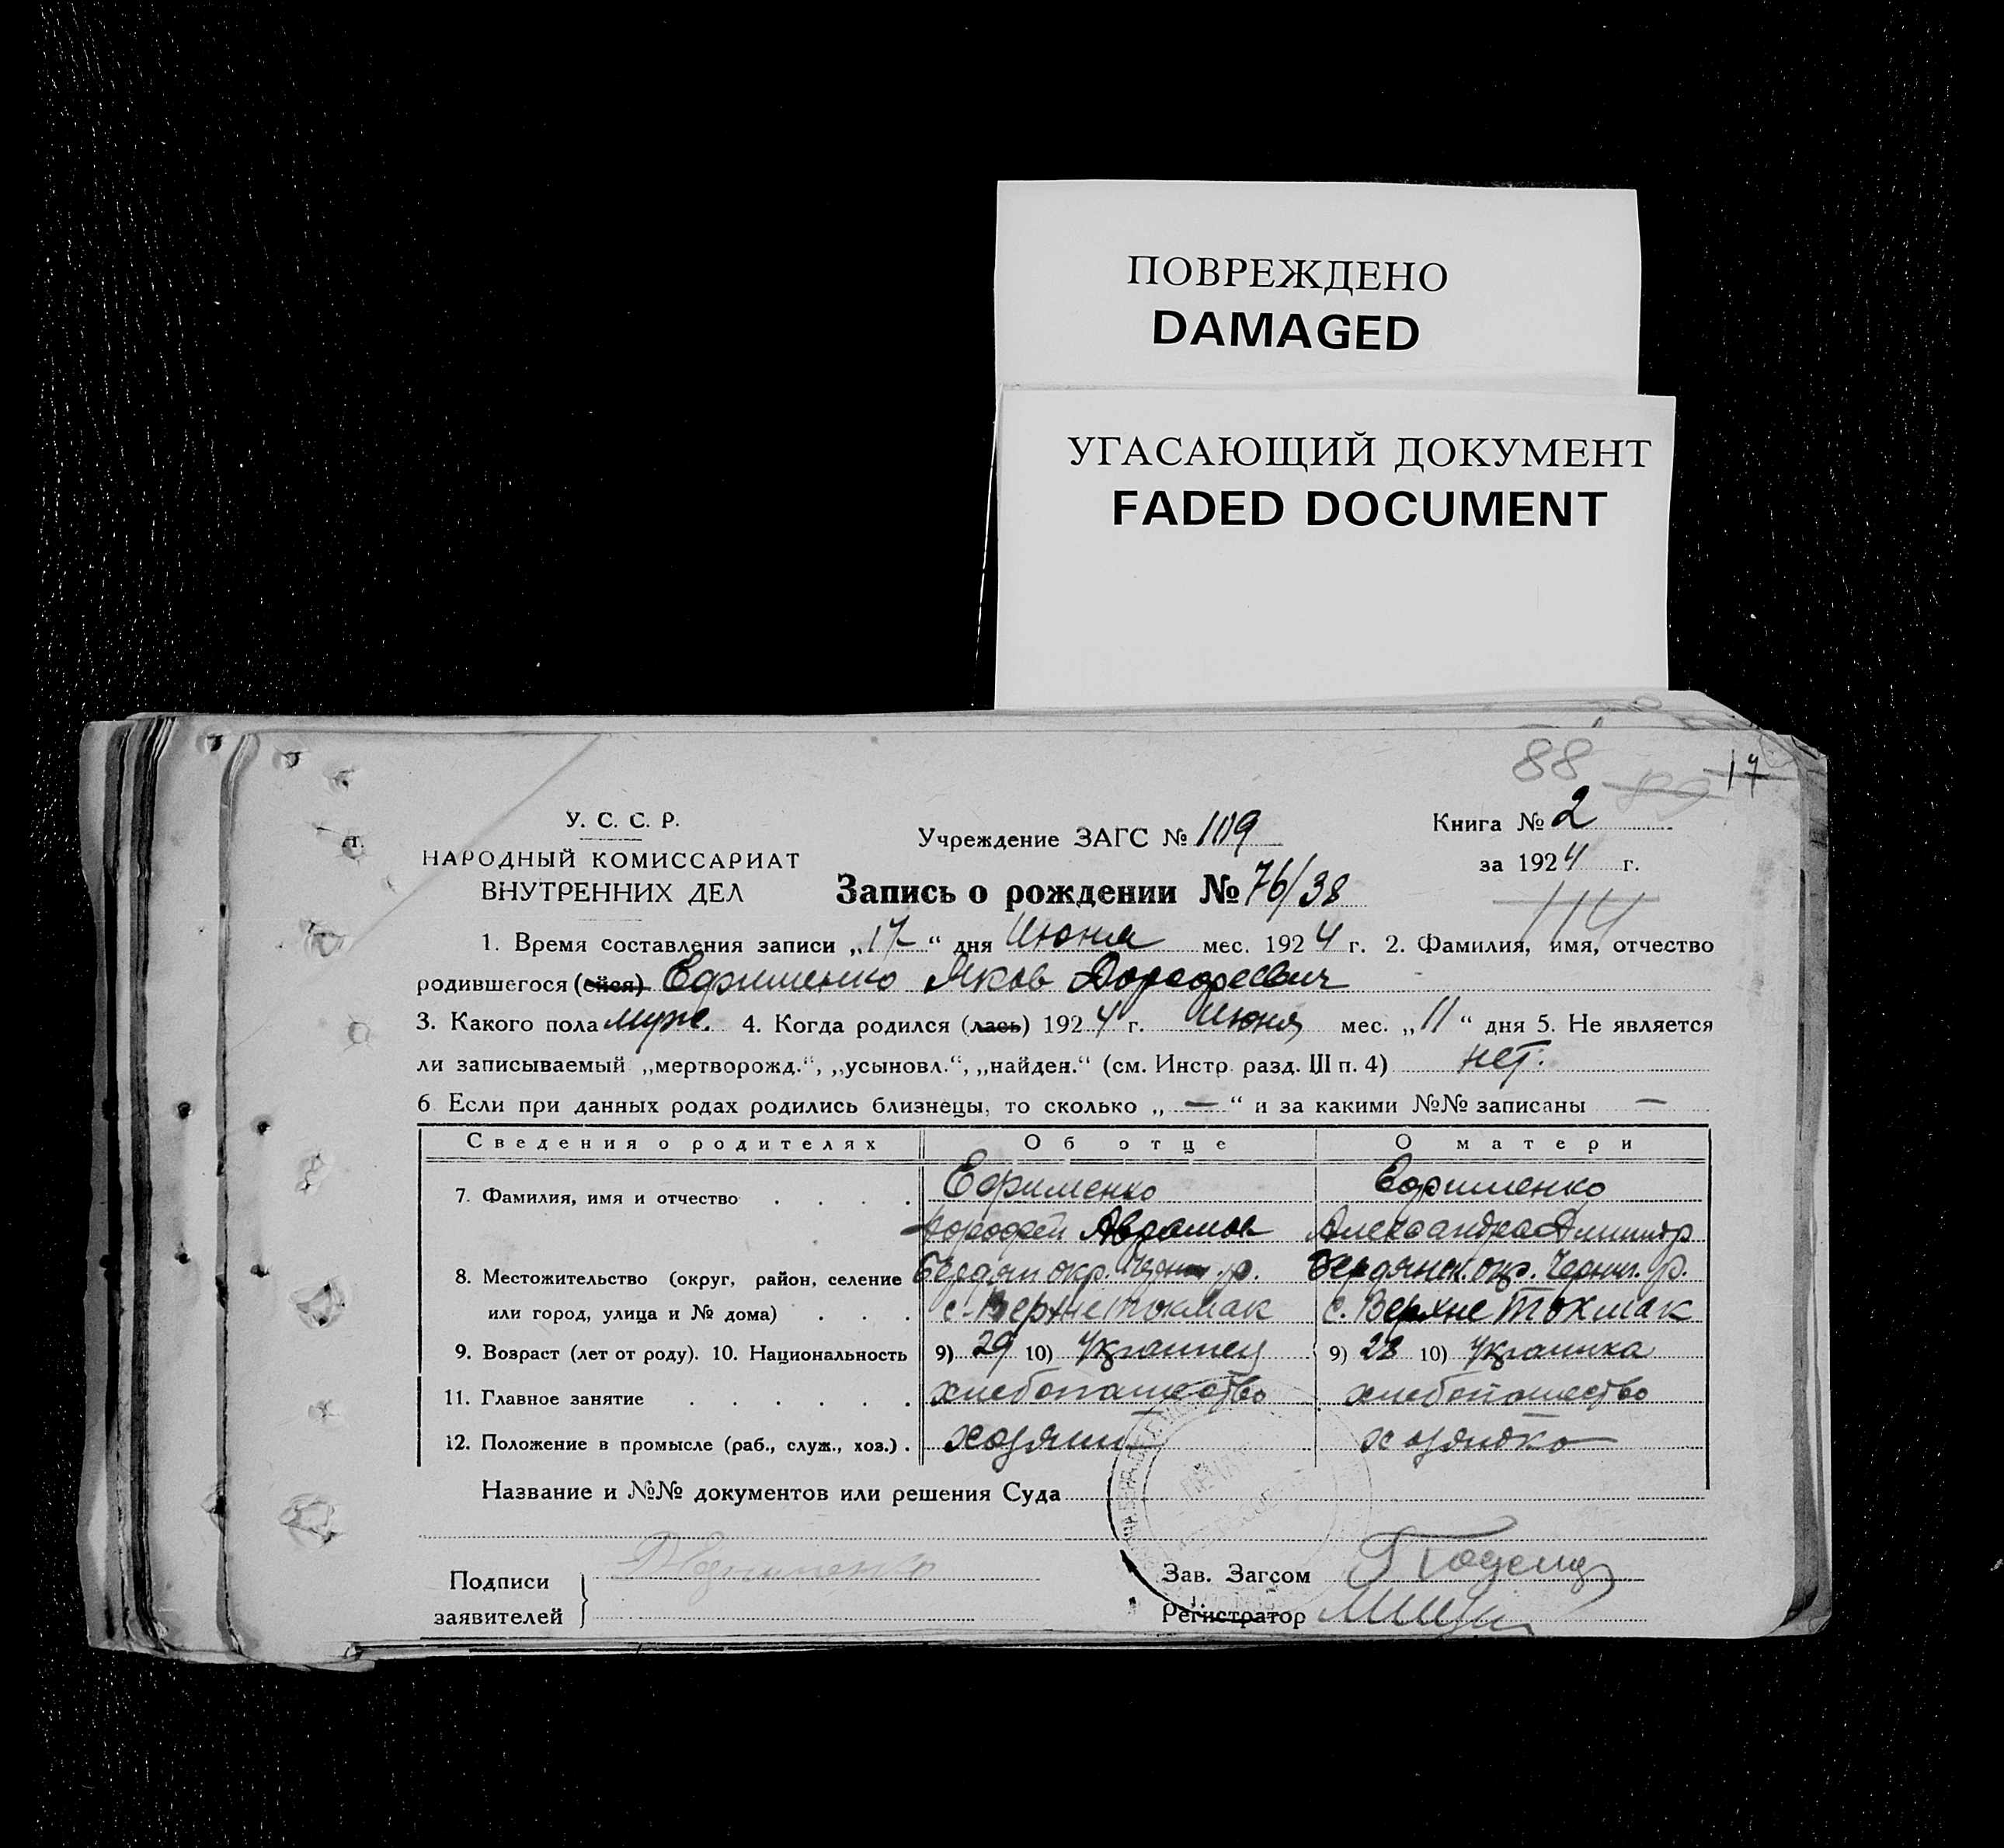 ПОВРЕЖДЕНО
DAMAGED
УГАСАЮЩИЙ ДОКУМЕНТ
FADED DOCUMENT
88 17
У. С. С. Р.
НАРОДНЫЙ КОМИССАРИАТ
ВНУТРЕННИХ ДЕЛ
Учреждение ЗАГС № 109
Книга № 2
за 1924 г.
114
Запись о рождении № 76/38
1. Время составления записи „17“ дня Июня мес. 1924 г. 2. Фамилия, имя, отчество
родившегося (ейся) Ефименко Яков Дорофеевич
3. Какого пола муж. 4. Когда родился (лась) 1924 г. Июня мес. „11“ дня 5. Не является
ли записываемый „мертворожд.“, „усыновл.“, „найден.“ (см. Инстр. разд. III п. 4) нет.
6 Если при данных родах родились близнецы, то сколько „ — “ и за какими №№ записаны —
Сведения о родителях Об отце О матери
7. Фамилия, имя и отчество Ефименко Ефименко
Дорофей Аврамов Александра Дмитр
8. Местожительство (округ, район, селение Бердян окр. Черн. р. Бердянск. окр. Черниг. р.
или город, улица и № дома) с. Верхне Токмак с. Верхне Токмак
9. Возраст (лет от роду). 10. Национальность 9) 29 10) Украинец 9) 28 10) Украинка
11. Главное занятие хлебопашество хлебопашество
12. Положение в промысле (раб., служ., хоз.) хозяин хозяйка
Название и №№ документов или решения Суда
Подписи
заявителей
Ефименко
Зав. Загсом
Регистратор